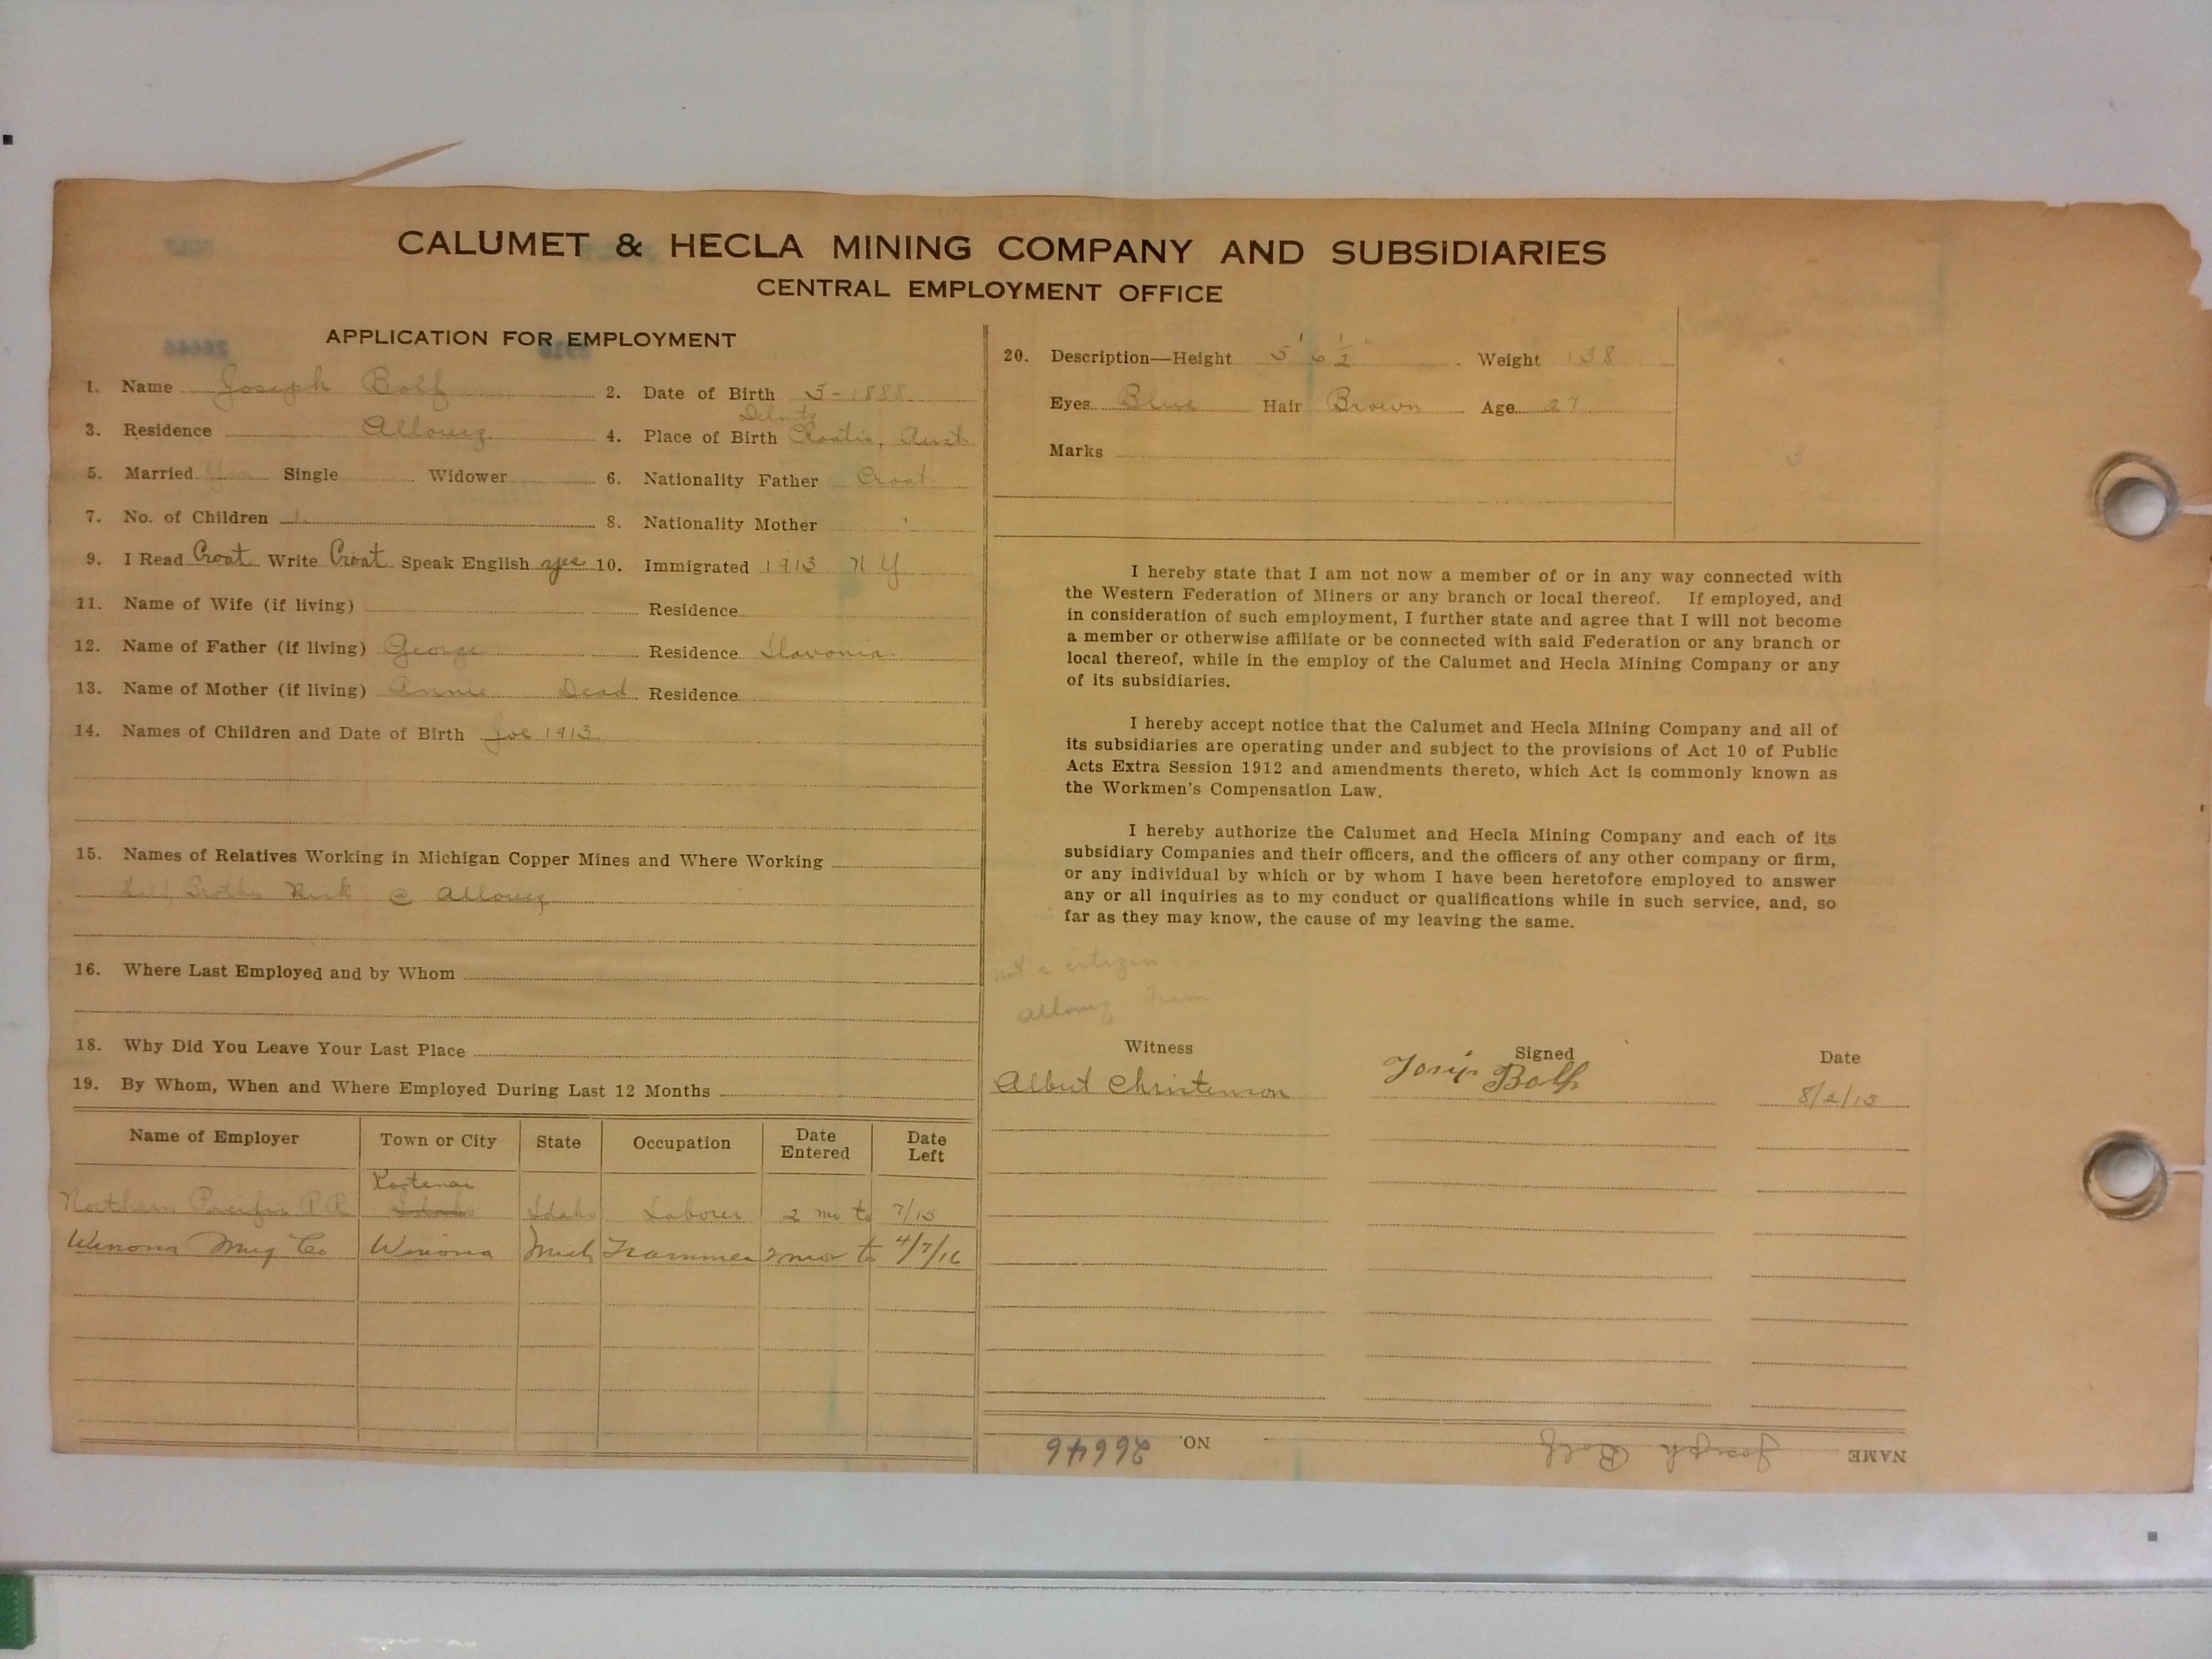 CALUMET & HECLA MINING COMPANY AND SUBSIDIARIES
CENTRAL EMPLOYMENT OFFICE
APPLICATION FOR EMPLOYMENT
1. Name Joseph Bolf 2. Date of Birth 3-1888
3. Residence Allouez 4. Place of Birth Croatia, Aust
5. Married Yes Single Widower 6. Nationality Father Croat
7. No. of Children 1 8. Nationality Mother "
9. I Read Croat Write Croat Speak English yes 10. Immigrated 1913 N Y
11. Name of Wife (if living) Residence
12. Name of Father (if living) George Residence Slavonia
13. Name of Mother (if living) Annie Dead Residence
14. Names of Children and Date of Birth Joe 1913
15. Names of Relatives Working in Michigan Copper Mines and Where Working
Half Brother Nick @ Allouez
16. Where Last Employed and by Whom
18. Why Did You Leave Your Last Place
19. By Whom, When and Where Employed During Last 12 Months
Name of Employer Town or City State Occupation Date Entered Date Left
Kootenai
Northern Pacific R R Idaho Idaho Laborer 2 mo to 7/15
Winona Mng Co Winona Mich Trammer 2 mos to 4/7/16
20. Description—Height 5' 6 1/2" Weight 138
Eyes Blue Hair Brown Age 27
Marks
3
I hereby state that I am not now a member of or in any way connected with
the Western Federation of Miners or any branch or local thereof. If employed, and
in consideration of such employment, I further state and agree that I will not become
a member or otherwise affiliate or be connected with said Federation or any branch or
local thereof, while in the employ of the Calumet and Hecla Mining Company or any
of its subsidiaries.
I hereby accept notice that the Calumet and Hecla Mining Company and all of
its subsidiaries are operating under and subject to the provisions of Act 10 of Public
Acts Extra Session 1912 and amendments thereto, which Act is commonly known as
the Workmen's Compensation Law.
I hereby authorize the Calumet and Hecla Mining Company and each of its
subsidiary Companies and their officers, and the officers of any other company or firm,
or any individual by which or by whom I have been heretofore employed to answer
any or all inquiries as to my conduct or qualifications while in such service, and, so
far as they may know, the cause of my leaving the same.
not a citizen
Allouez Tram
Witness Signed Date
Albert Christenson Josip Bolf 8/2/15
NAME Joseph Bolf NO. 26646